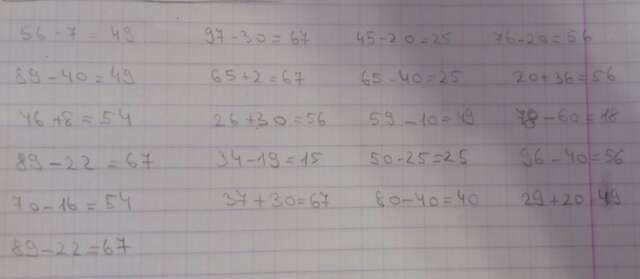 56-7=49 97-30=67 45-20=25 76-20=56
89-40=49 65+2=67 65-40=25 20+36=56
46+8=54 26+30=56 59-10=49 78-60=18
89-22=67 34-19=15 50-25=25 96-40=56
70-16=54 37+30=67 80-40=40 29+20 49
89-22=67